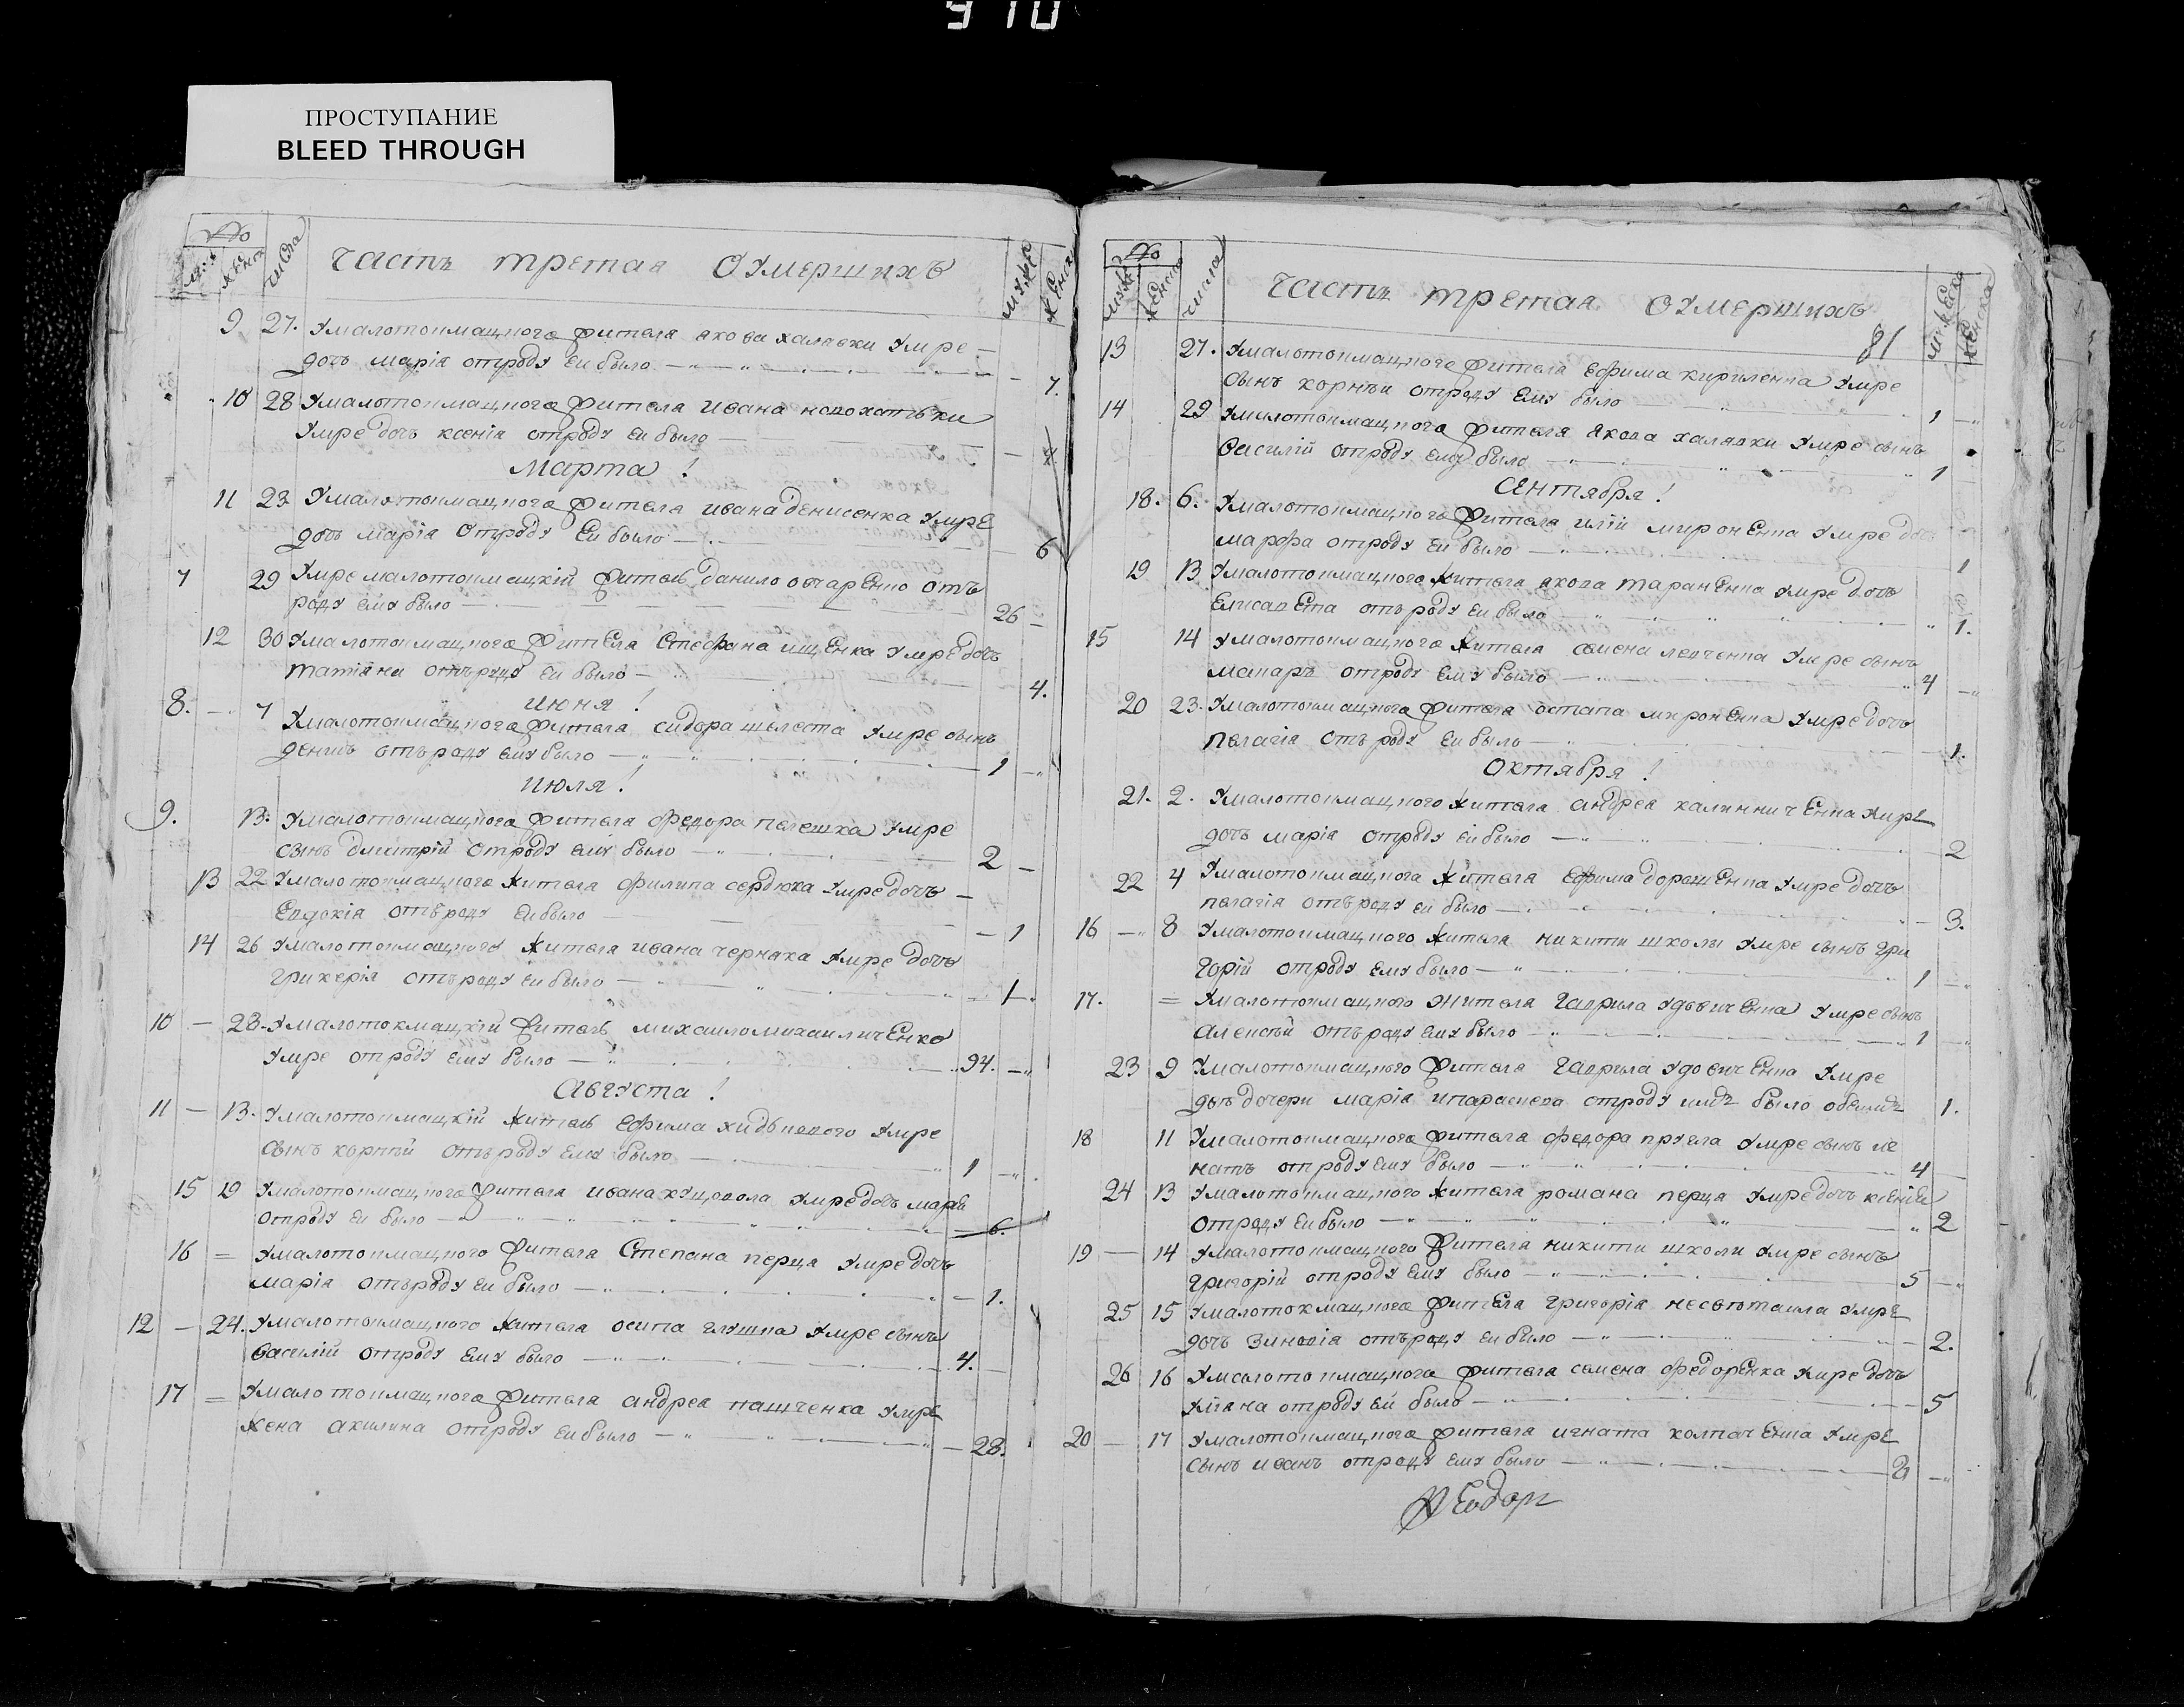 910
ПРОСТУПАНИЕ
BLEED THROUGH
№ числа
часть третая оумершихъ
мужес женск
9 27. Умалотокмацкого жителя якова халявки умре
дочь марія отроду ей было 7.
10 28 Умалотокмацкого жителя ивана
умре дочь ксенія отроду ей было 4.
Марта!
11 23 Умалотокмацкого жителя ивана денисенка умре
дочь марія отроду ей было 6
7 29 Умре малотокмацкій житель данило овчаренко отъ
роду ему было 26
12 30 Умалотокмацкого жителя стефана ищенка умре дочь
татіяна отъроду ей было 4.
июня!
8. 7 Умалотокмацкого жителя сидора шелеста умре сынъ
денисъ отъроду ему было 1
июля!
9. 13. Умалотокмацкого жителя федора пелешка умре
сынъ дмитрій отроду ему было 2
13 22 Умалотокмацкого жителя филипа сердюка умре дочь
евдокія отъроду ей было 1
14 26 Умалотокмацкого жителя ивана черняка умре дочь
гликерія отъроду ей было 1.
10 28. Умалотокмацкій житель михаило михаиличенко
умре отроду ему было 94.
Августа!
11 13. Умалотокмацкій житель ефима умре
сынъ корнѣй отъроду ему было 1
15 19 Умалотокмацкого жителя ивана умре дочь
отроду ей было 6.
16 = Умалотокмацкого жителя степана перца умре дочь
марія отъроду ей было 1.
12 24. Умалотокмацкого жителя осипа глушка умре сынъ
василій отроду ему было 4.
17 = Умалотокмацкого жителя андрея пащченка умре
жена акилина отроду ей было 28.
№ мужес женск числа
часть третая оумершихъ
мужеска женска
81
13 27. Умалотокмацкого жителя ефима кириленка умре
сынъ корнѣй отроду ему было 1
14 29 Умалотокмацкого жителя якова халявки умре сынъ
василій отроду ему было 1
сентября!
18. 6. Умалотокмацкого жителя илій мироненка умре дочь
марфа отроду ей было 1
19 13 Умалотокмацкого жителя якова тараненка умре дочь
елисавета отъроду ей было 1.
15 14 Умалотокмацкого жителя семена левченка умре сынъ
макаръ отроду ему было 4
20 23. Умалотокмацкого жителя остапа мироненка умре дочь
пелагія отъ роду ей было 1.
Октября!
21. 2. Умалотокмацкого жителя андрея калинниченка умре
дочь марія отроду ей было 2
22 4 Умалотокмацкого жителя ефима дорошенка умре дочь
пелагія отъроду ей было 3.
16 8 Умалотокмацкого жителя никити школи умре сынъ гри
горій отроду ему было 1
17. = Умалотокмацкого жителя гаврила удовиченка умре сынъ
алексѣй отъроду ему было 1
23 9 Умалотокмацкого жителя гаврила удовиченка умре
двѣ дочери марія ипараскева отроду имъ было обеимъ 1.
18 11 Умалотокмацкого жителя федора умре сынъ иг
натъ отроду ему было 4
24 13 Умалотокмацкого жителя романа перца умре дочь ксенія
отроду ей было 2
19 14 Умалотокмацкого жителя никити школи умре сынъ
григорій отроду ему было 5
25 15 Умалотокмацкого жителя григорія умре
дочь зиновія отъроду ей было 2.
26 16 Умалотокмацкого жителя семена федоренка умре дочь
уліяна отроду ей было 5
20 17 Умалотокмацкого жителя игната колпаченка умре
сынъ иванъ отроду ему было 2